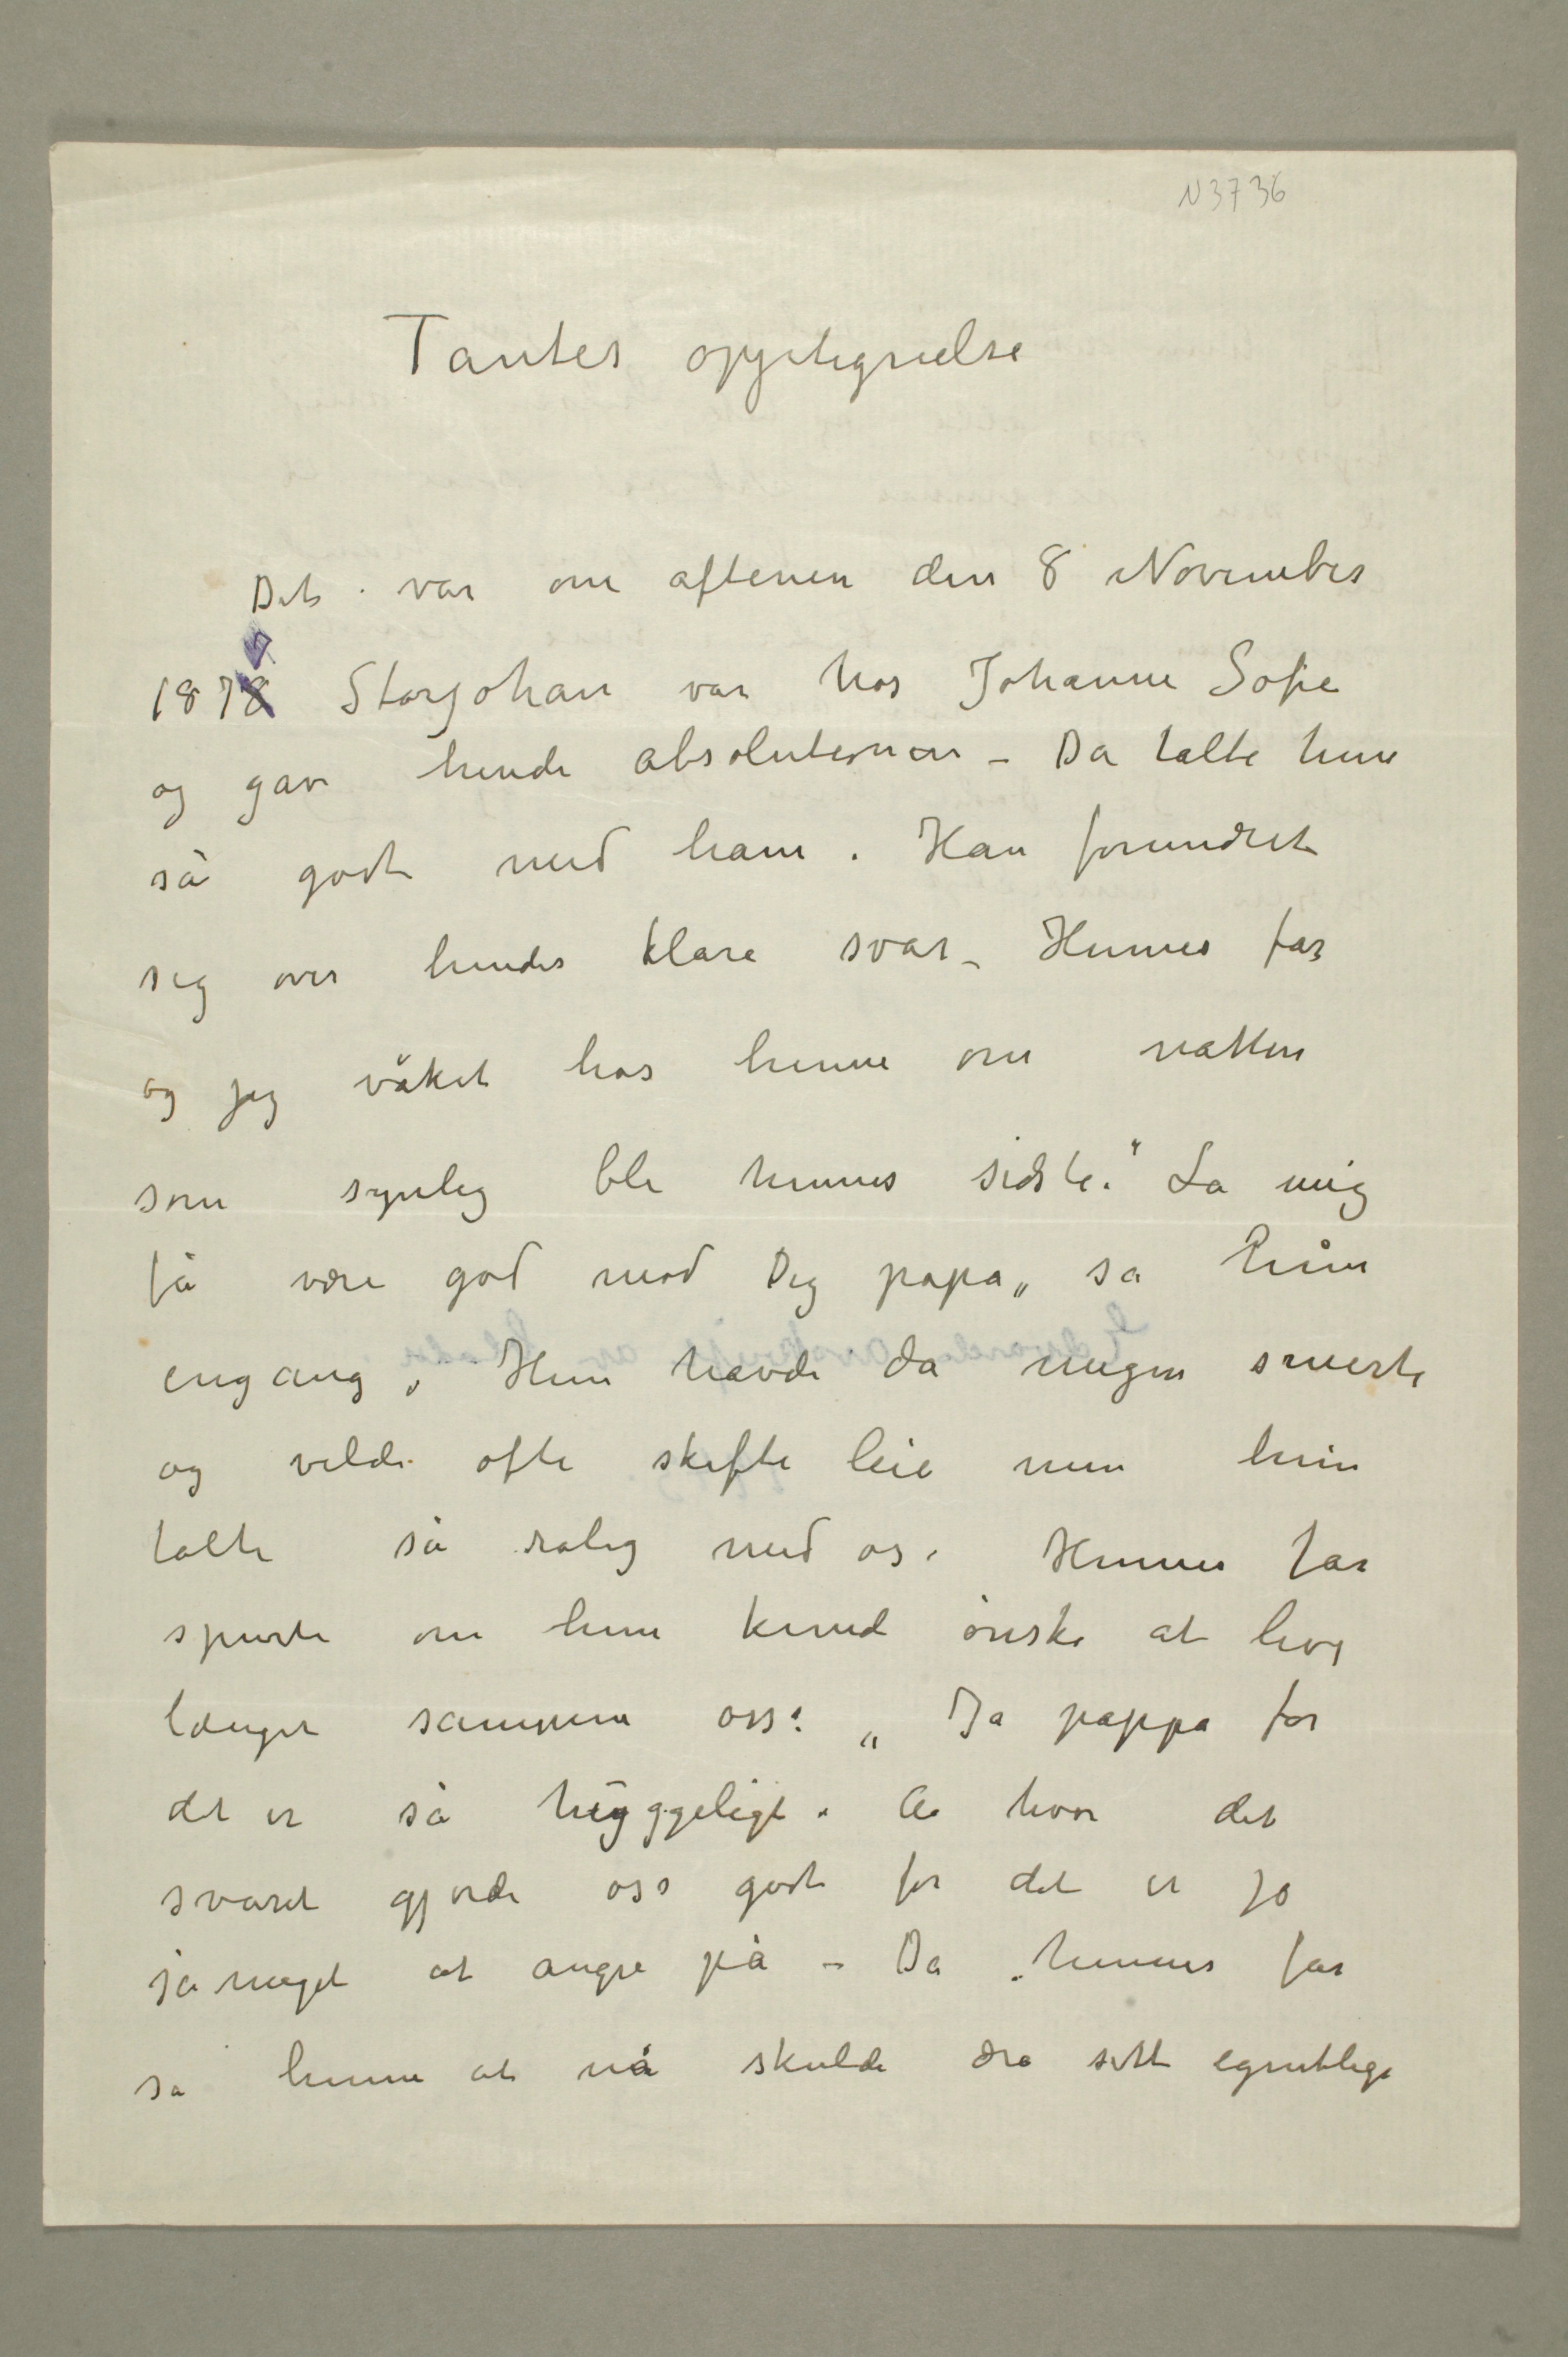 N3736
Tantes opptegnelse
Det var om aftenen den 8 November
1877 Storjohan var hos Johanne Sofie
og gav hende absolutionen – Da talte hun
så godt med ham. Han forundret
sig over hendes klare svar – Hennes far
og jeg våket hos henne om natten
som synlig ble hennes sidste. "La mig
få være god mod Dig papa" sa hun
engang. Hun havde da megen smerte
og vilde ofte skifte leie men hun
talte så rolig med os. Hennes far
spurte om hun kunde ønske at leve
længer sammen oss: "Ja pappa for
det er så hyggeligt. Aa hvor det
svaret gjorde oss godt for det er jo
så meget at angre på – Da hennes far
sa henne at nå skulde dra sitt egentlige